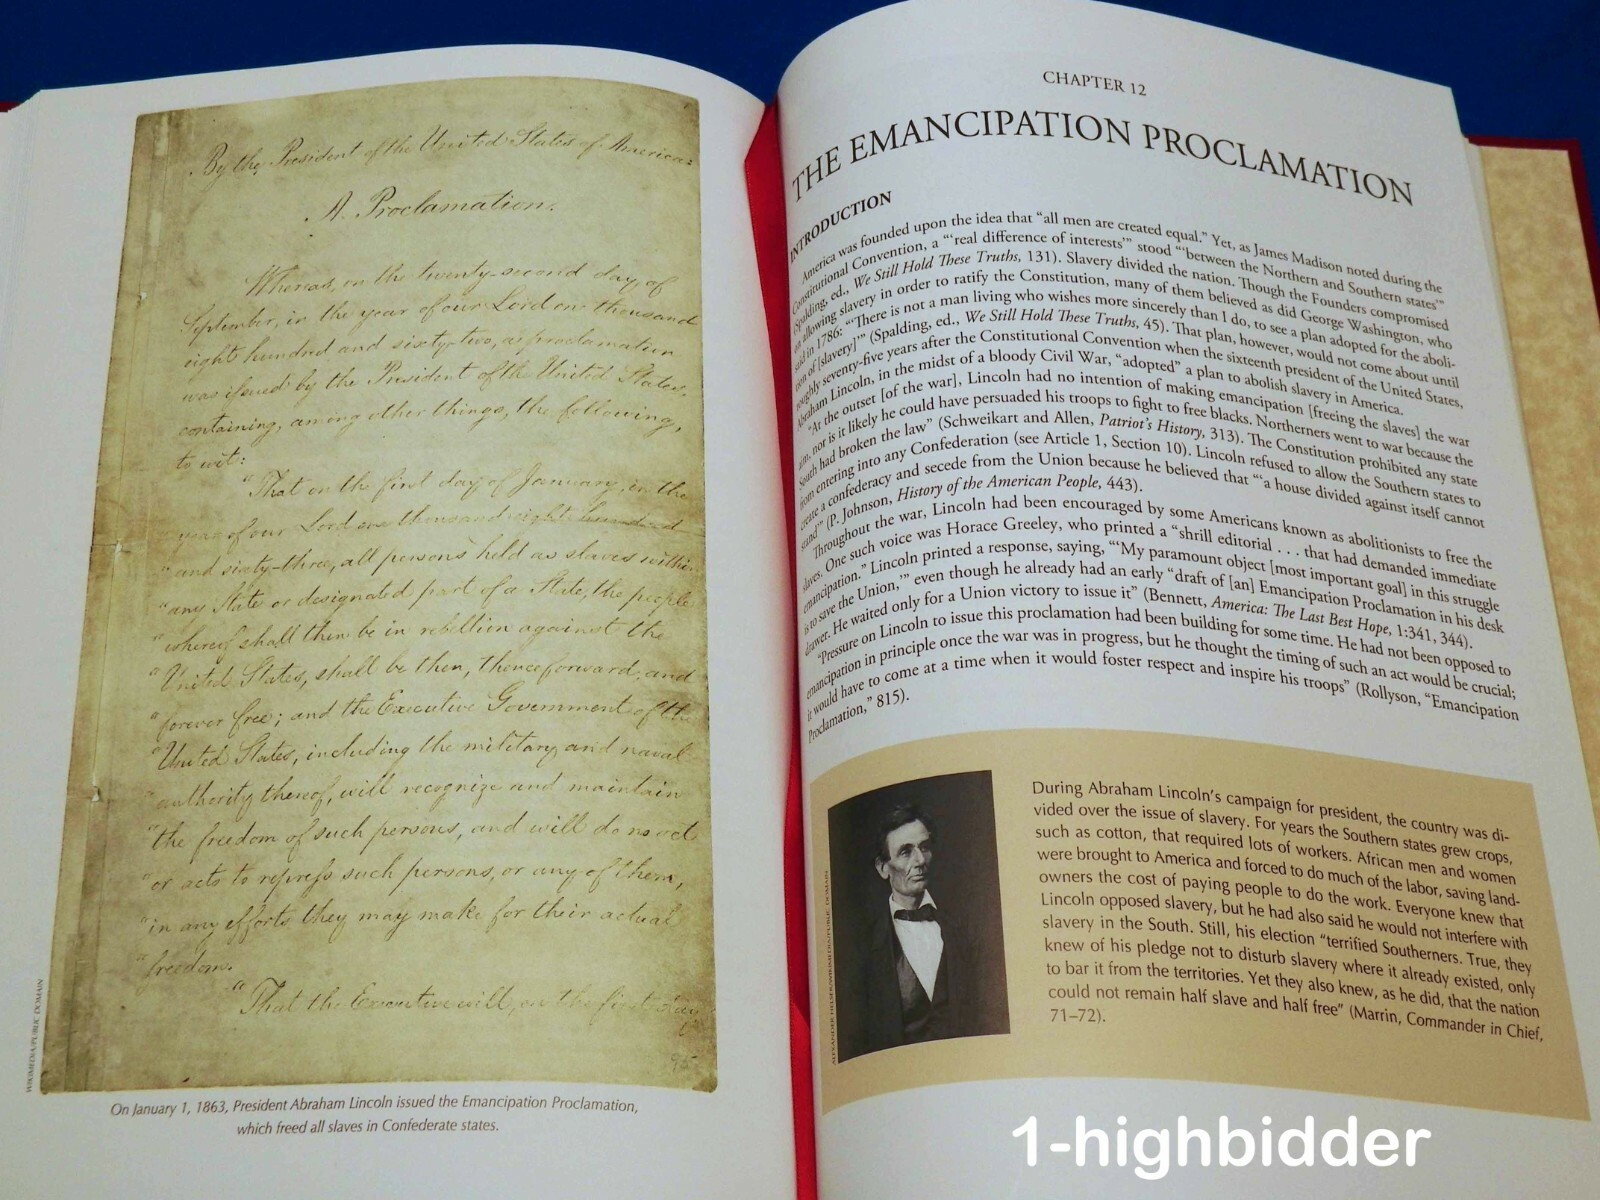 By the President of the United States of America:
A Proclamation.
Whereas, on the twenty-second day of
September, in the year of our Lord one thousand
eight hundred and sixty-two, a proclamation
was issued by the President of the United States,
containing, among other things, the following,
to wit:
"That on the first day of January, in the
year of our Lord one thousand eight hundred
"and sixty-three, all persons held as slaves within
"any State or designated part of a State, the people
"whereof shall then be in rebellion against the
"United States, shall be then, thenceforward, and
"forever free; and the Executive Government of the
"United States, including the military and naval
"authority thereof, will recognize and maintain
"the freedom of such persons, and will do no act
"or acts to repress such persons, or any of them,
"in any efforts they may make for their actual
"freedom.
"That the Executive will, on the first day
WIKIMEDIA/PUBLIC DOMAIN
On January 1, 1863, President Abraham Lincoln issued the Emancipation Proclamation,
which freed all slaves in Confederate states.
CHAPTER 12
THE EMANCIPATION PROCLAMATION
INTRODUCTION
America was founded upon the idea that “all men are created equal.” Yet, as James Madison noted during the
Constitutional Convention, a “‘real difference of interests’” stood “‘between the Northern and Southern states’”
(Spalding, ed., We Still Hold These Truths, 131). Slavery divided the nation. Though the Founders compromised
on allowing slavery in order to ratify the Constitution, many of them believed as did George Washington, who
said in 1786: “‘There is not a man living who wishes more sincerely than I do, to see a plan adopted for the aboli-
tion of [slavery]’” (Spalding, ed., We Still Hold These Truths, 45). That plan, however, would not come about until
roughly seventy-five years after the Constitutional Convention when the sixteenth president of the United States,
Abraham Lincoln, in the midst of a bloody Civil War, “adopted” a plan to abolish slavery in America.
“At the outset [of the war], Lincoln had no intention of making emancipation [freeing the slaves] the war
aim, nor is it likely he could have persuaded his troops to fight to free blacks. Northerners went to war because the
South had broken the law” (Schweikart and Allen, Patriot’s History, 313). The Constitution prohibited any state
from entering into any Confederation (see Article 1, Section 10). Lincoln refused to allow the Southern states to
create a confederacy and secede from the Union because he believed that “‘a house divided against itself cannot
stand’” (P. Johnson, History of the American People, 443).
Throughout the war, Lincoln had been encouraged by some Americans known as abolitionists to free the
slaves. One such voice was Horace Greeley, who printed a “shrill editorial . . . that had demanded immediate
emancipation.” Lincoln printed a response, saying, “‘My paramount object [most important goal] in this struggle
is to save the Union,’” even though he already had an early “draft of [an] Emancipation Proclamation in his desk
drawer. He waited only for a Union victory to issue it” (Bennett, America: The Last Best Hope, 1:341, 344).
“Pressure on Lincoln to issue this proclamation had been building for some time. He had not been opposed to
emancipation in principle once the war was in progress, but he thought the timing of such an act would be crucial;
it would have to come at a time when it would foster respect and inspire his troops” (Rollyson, “Emancipation
Proclamation,” 815).
ALEXANDER HESLER/WIKIMEDIA/PUBLIC DOMAIN
During Abraham Lincoln’s campaign for president, the country was di-
vided over the issue of slavery. For years the Southern states grew crops,
such as cotton, that required lots of workers. African men and women
were brought to America and forced to do much of the labor, saving land-
owners the cost of paying people to do the work. Everyone knew that
Lincoln opposed slavery, but he had also said he would not interfere with
slavery in the South. Still, his election “terrified Southerners. True, they
knew of his pledge not to disturb slavery where it already existed, only
to bar it from the territories. Yet they also knew, as he did, that the nation
could not remain half slave and half free” (Marrin, Commander in Chief,
71–72).
1-highbidder